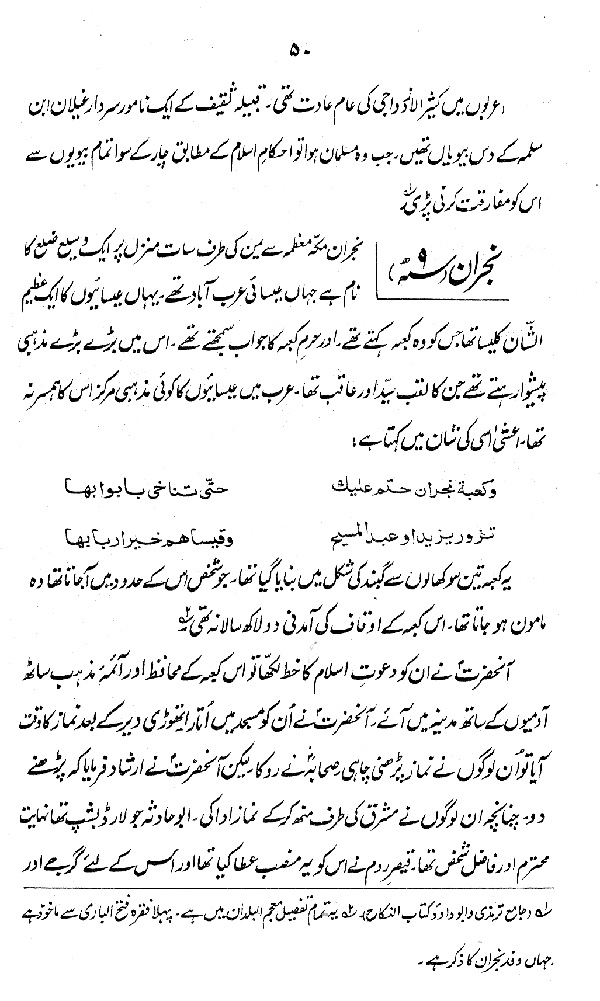 ۵۰
عربوں میں کثیر الازدواجی کی عام عادت تھی۔ قبیلہ ثقیف کے ایک نامور سردار غیلان ابن
سلمہ کے دس بیویاں تھیں، جب وہ مسلمان ہوا تو احکام اسلام کے مطابق چار کے سوا تمام بیویوں سے
اس کو مفارقت کرنی پڑی لہ
نجران (۹ سنہ)
نجران مکہ معظمہ سے یمن کی طرف سات منزل پر ایک وسیع ضلع کا
نام ہے جہاں عیسائی عرب آباد تھے۔ یہاں عیسائیوں کا ایک عظیم
الشان کلیسا تھا جس کو وہ کعبہ کہتے تھے۔ اور حرم کعبہ کا جواب سمجھتے تھے۔ اس میں بڑے بڑے مذہبی
پیشوا رہتے تھے جن کا لقب سید اور عاقب تھا۔ عرب میں عیسائیوں کا کوئی مذہبی مرکز اس کا ہمسر نہ
تھا۔ اعشیٰ اسی کی شان میں کہتا ہے:
وکعبة نجران حتم علیك حتّی تناخی بابوابها
تزور یزید او عبد المسیح وقیساهم خیر اربابها
یہ کعبہ تین سو کھالوں سے گنبد کی شکل میں بنایا گیا تھا۔ جو شخص اس کے حدود میں آجاتا تھا وہ
مامون ہو جاتا تھا۔ اس کعبہ کے اوقاف کی آمدنی دو لاکھ سالانہ تھی لہ
آنحضرتؐ نے ان کو دعوت اسلام کا خط لکھا تو اس کعبہ کے محافظ اور آئمہ مذہب ساٹھ
آدمیوں کے ساتھ مدینہ میں آئے۔ آنحضرتؐ نے اُن کو مسجد میں اُتارا تھوڑی دیر کے بعد نماز کا وقت
آیا تو اُن لوگوں نے نماز پڑھنی چاہی صحابہؓ نے روکا، لیکن آنحضرتؐ نے ارشاد فرمایا کہ پڑھنے
دو۔ چنانچہ ان لوگوں نے مشرق کی طرف منھ کر کے نماز ادا کی۔ ابو حارثہ جو لارڈ بشپ تھا نہایت
محترم اور فاضل شخص تھا۔ قیصر روم نے اس کو یہ منصب عطا کیا تھا اور اس کے لئے گرجے اور
لہ جامع ترمذی و ابو داؤد کتاب النکاح۔ لہ یہ تمام تفصیل معجم البلدان میں ہے۔ پہلا فقرہ فتح الباری سے ماخوذ ہے
جہاں وفد نجران کا ذکر ہے۔